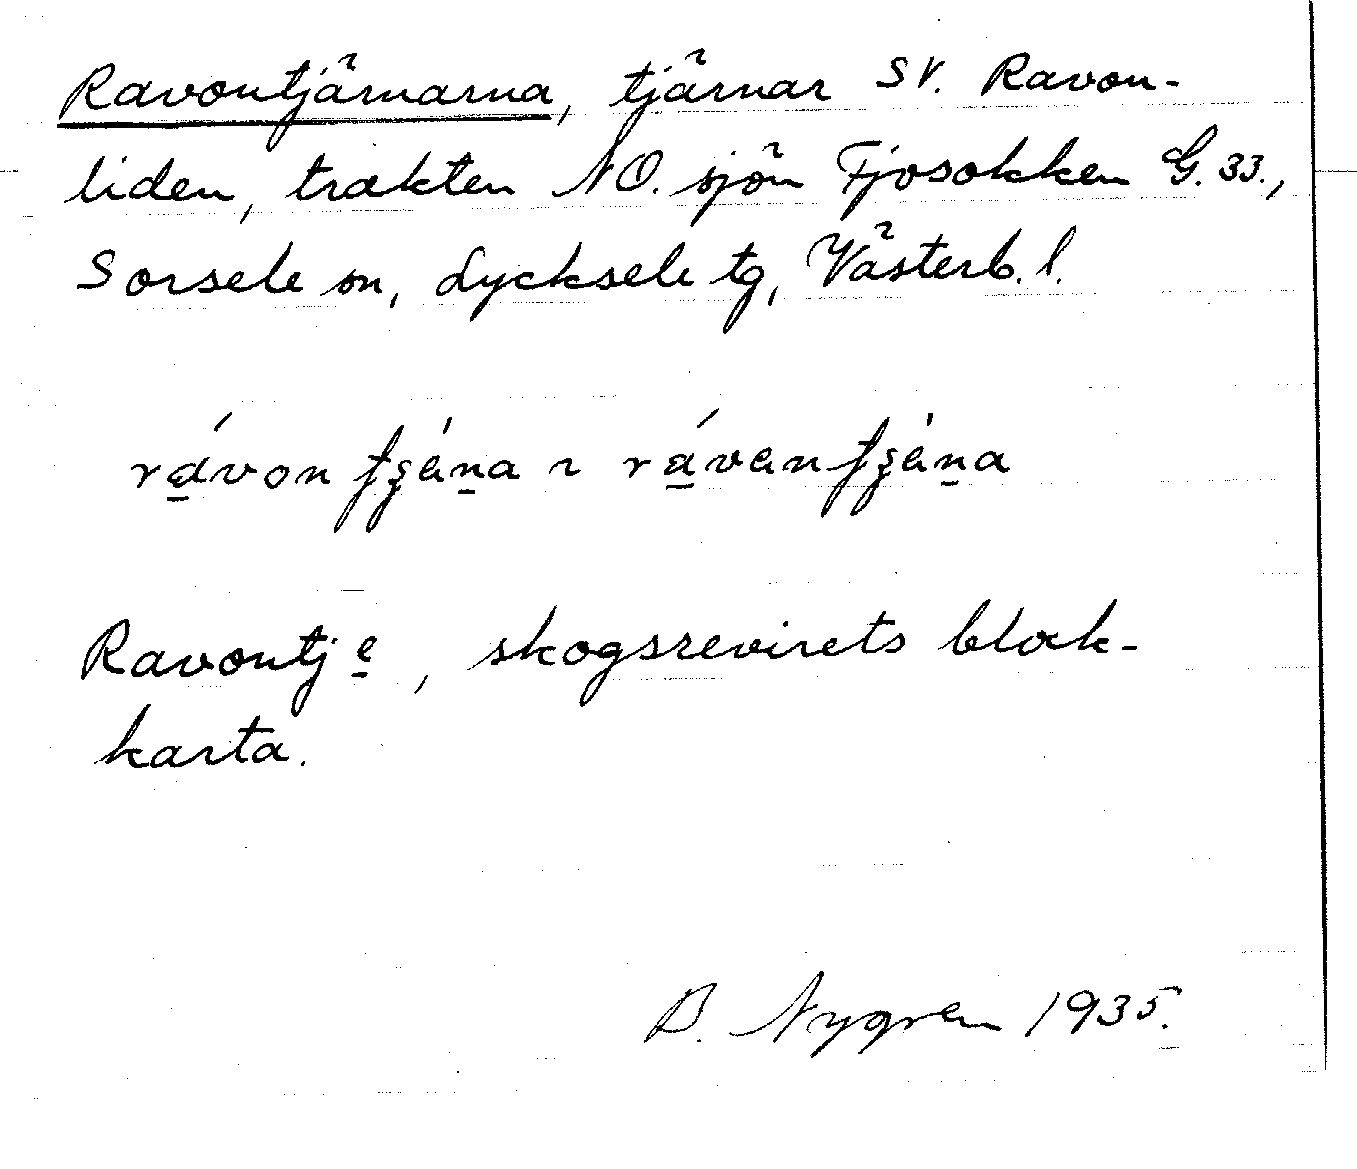 Ravontjärnarna, tjärnar SV. Ravon-
liden, trakten NO. sjön Fjosokken G. 33.,
Sorsele sn, Lycksele tg, Västerb. l.
rávon ʈȿǽṉa ~ rávan ʈȿǽṉa
Ravontje, skogsrevirets block-
karta.
B. Nygren 1935.